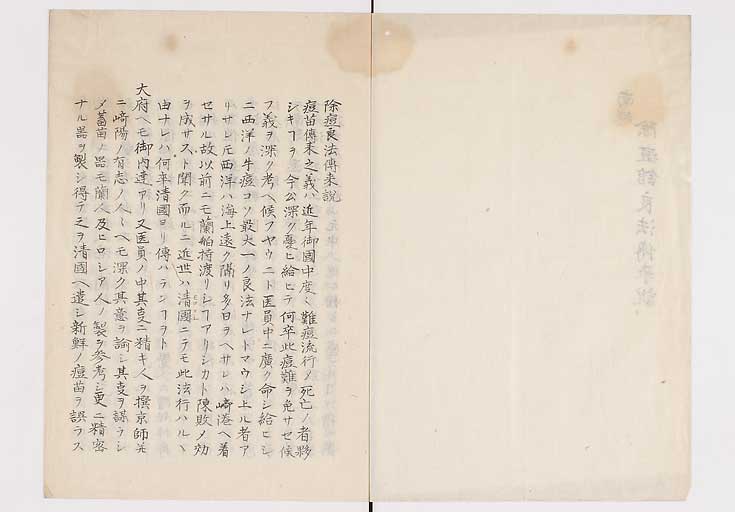 除痘良法傳来説
痘苗傳来之義ハ近年御國中度々難痘流行メ死亡ノ者夥
シキヿヲ 今公深ク憂ヒ給ヒテ何卒此痘難ヲ免サセ候
フ義ヲ深ク考ヘ候フヤウニト医員中ニ廣ク命シ給ヒシ
ニ西洋ノ牛痘コソ最大一ノ良法ナレトマウシ上ル者ア
リサレ𪜈西洋ハ海上遠ク隔リ多日ヲヘサレハ崎港ヘ着
セサル故以前ニモ蘭舶持渡リシヿアリシカト陳敗ノ効
ヲ成サスト聞ク而ルニ近世ハ清國ニテモ此法行ハルヽ
由ナレハ何卒清國ヨリ傳ハランヿヲト
大府ヘモ御内達アリ又医員ノ中其事ニ精キ人ヲ撰京師并
ニ崎陽ノ有志ノ人々ヘモ深ク其意ヲ諭シ其事ヲ謀ラシ
メ蓄苗ノ器モ蘭人及ヒロシア人ノ製ヲ参考シ更ニ精密
ナル器ヲ製シ得テ之ヲ清國ヘ遣シ新鮮ノ痘苗ヲ誤ラス